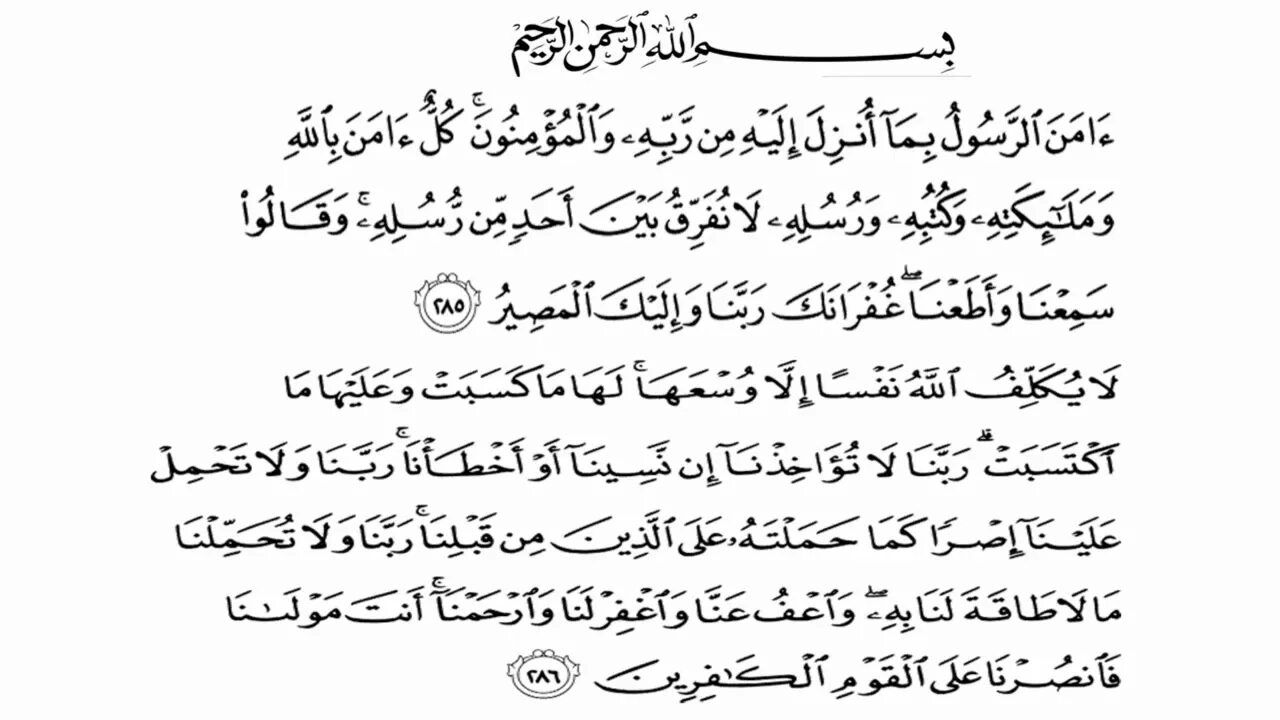 بِسْمِ ٱللَّهِ ٱلرَّحْمَٰنِ ٱلرَّحِيمِ
ءَامَنَ ٱلرَّسُولُ بِمَآ أُنزِلَ إِلَيْهِ مِن رَّبِّهِۦ وَٱلْمُؤْمِنُونَ ۚ كُلٌّ ءَامَنَ بِٱللَّهِ
وَمَلَـٰٓئِكَتِهِۦ وَكُتُبِهِۦ وَرُسُلِهِۦ لَا نُفَرِّقُ بَيْنَ أَحَدٍ مِّن رُّسُلِهِۦ ۚ وَقَالُوا۟
سَمِعْنَا وَأَطَعْنَا ۖ غُفْرَانَكَ رَبَّنَا وَإِلَيْكَ ٱلْمَصِيرُ ٢٨٥
لَا يُكَلِّفُ ٱللَّهُ نَفْسًا إِلَّا وُسْعَهَا ۚ لَهَا مَا كَسَبَتْ وَعَلَيْهَا مَا
ٱكْتَسَبَتْ ۗ رَبَّنَا لَا تُؤَاخِذْنَآ إِن نَّسِينَآ أَوْ أَخْطَأْنَا ۚ رَبَّنَا وَلَا تَحْمِلْ
عَلَيْنَآ إِصْرًا كَمَا حَمَلْتَهُۥ عَلَى ٱلَّذِينَ مِن قَبْلِنَا ۚ رَبَّنَا وَلَا تُحَمِّلْنَا
مَا لَا طَاقَةَ لَنَا بِهِۦ ۖ وَٱعْفُ عَنَّا وَٱغْفِرْ لَنَا وَٱرْحَمْنَآ ۚ أَنتَ مَوْلَىٰنَا
فَٱنصُرْنَا عَلَى ٱلْقَوْمِ ٱلْكَـٰفِرِينَ ٢٨٦